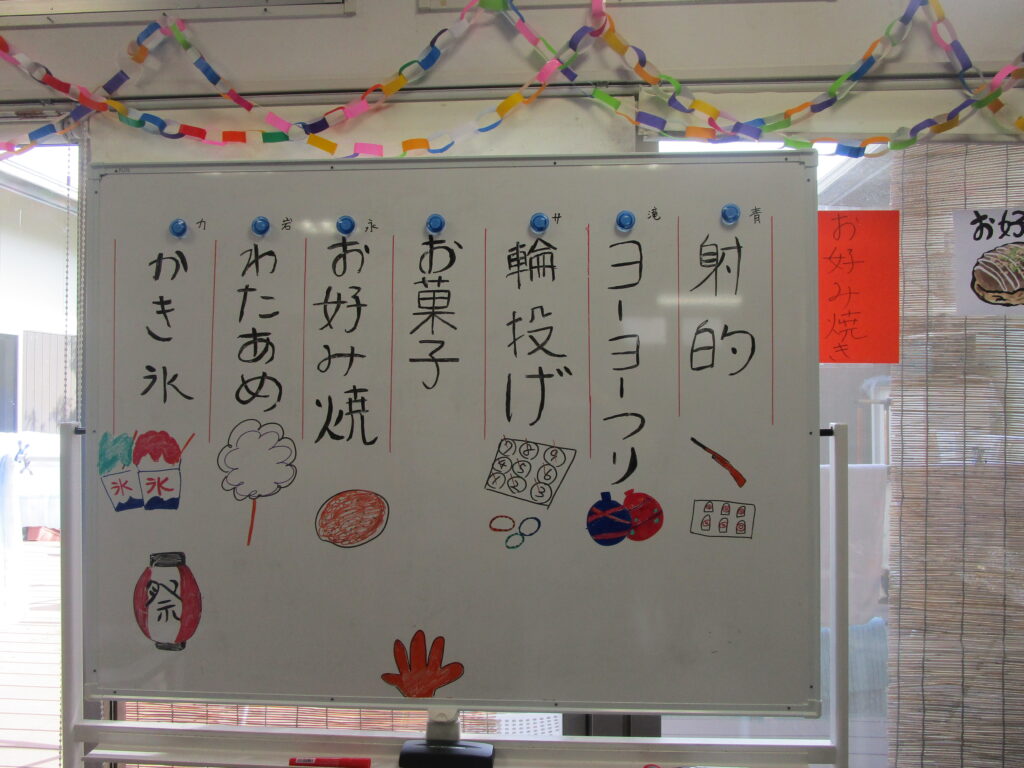 青
射的
滝
ヨーヨーつり
サ
輪投げ
お菓子
永
お好み焼
岩
わたあめ
カ
かき氷
氷
氷
祭
7 8 9
4 5 6
1 2 3
お好み焼き
お好